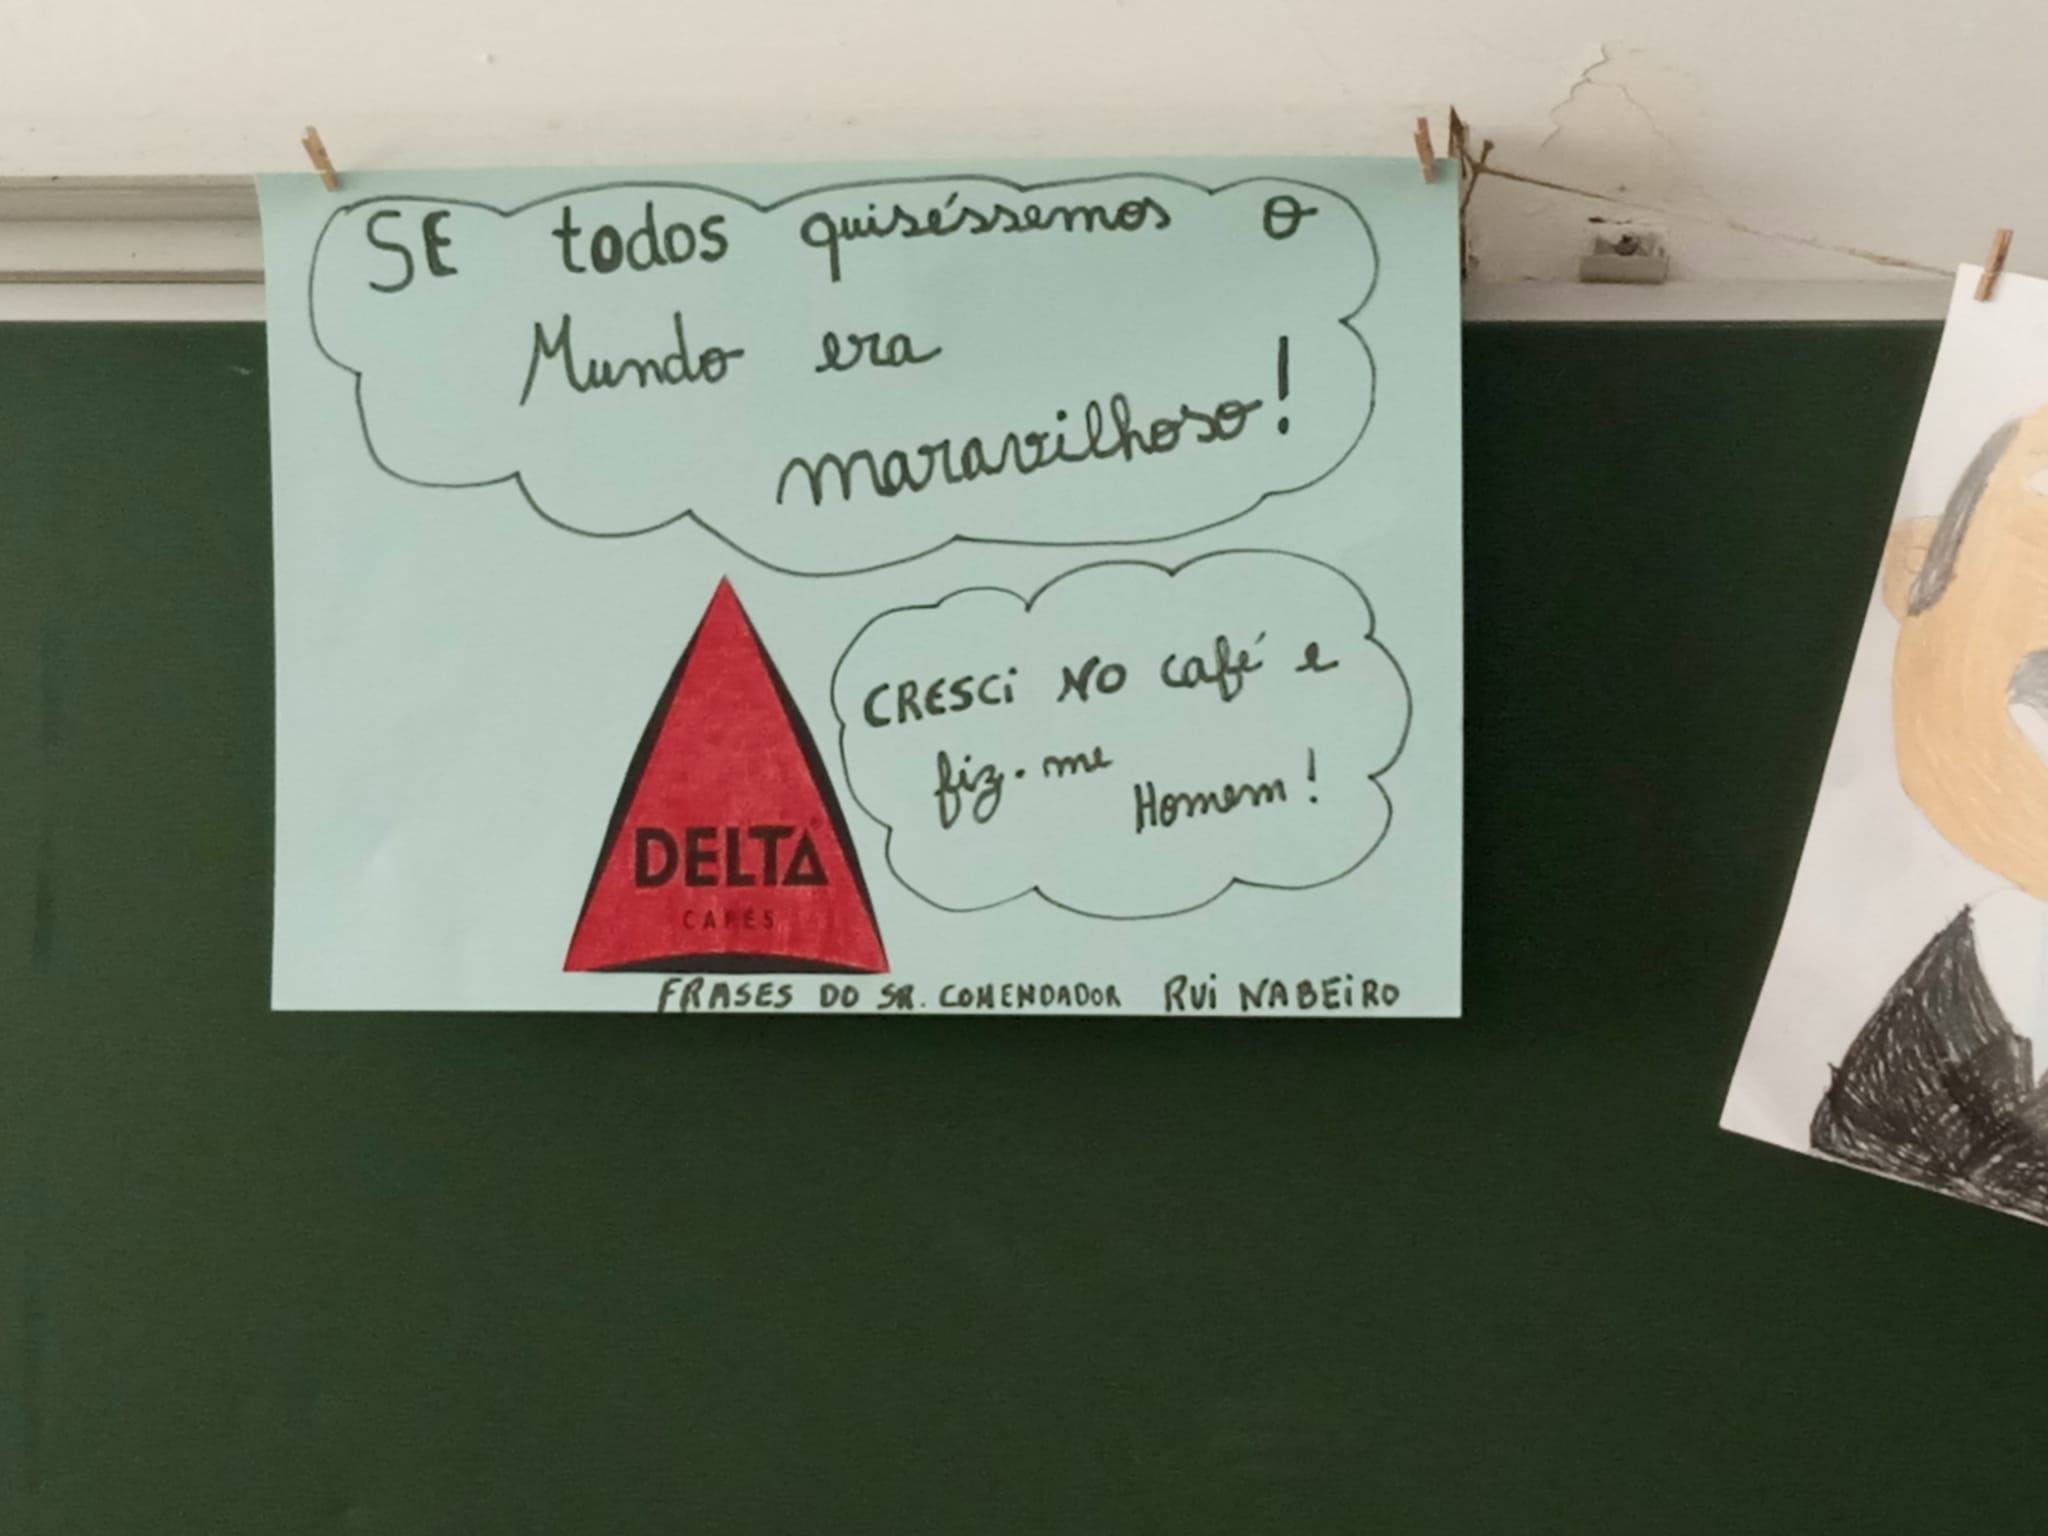 SE todos quiséssemos o
Mundo era
maravilhoso!
CRESCi NO café e
fiz-me
Homem!
DELTA
CAFÉS
FRASES DO SR. COMENDADOR RUi NABEiRO